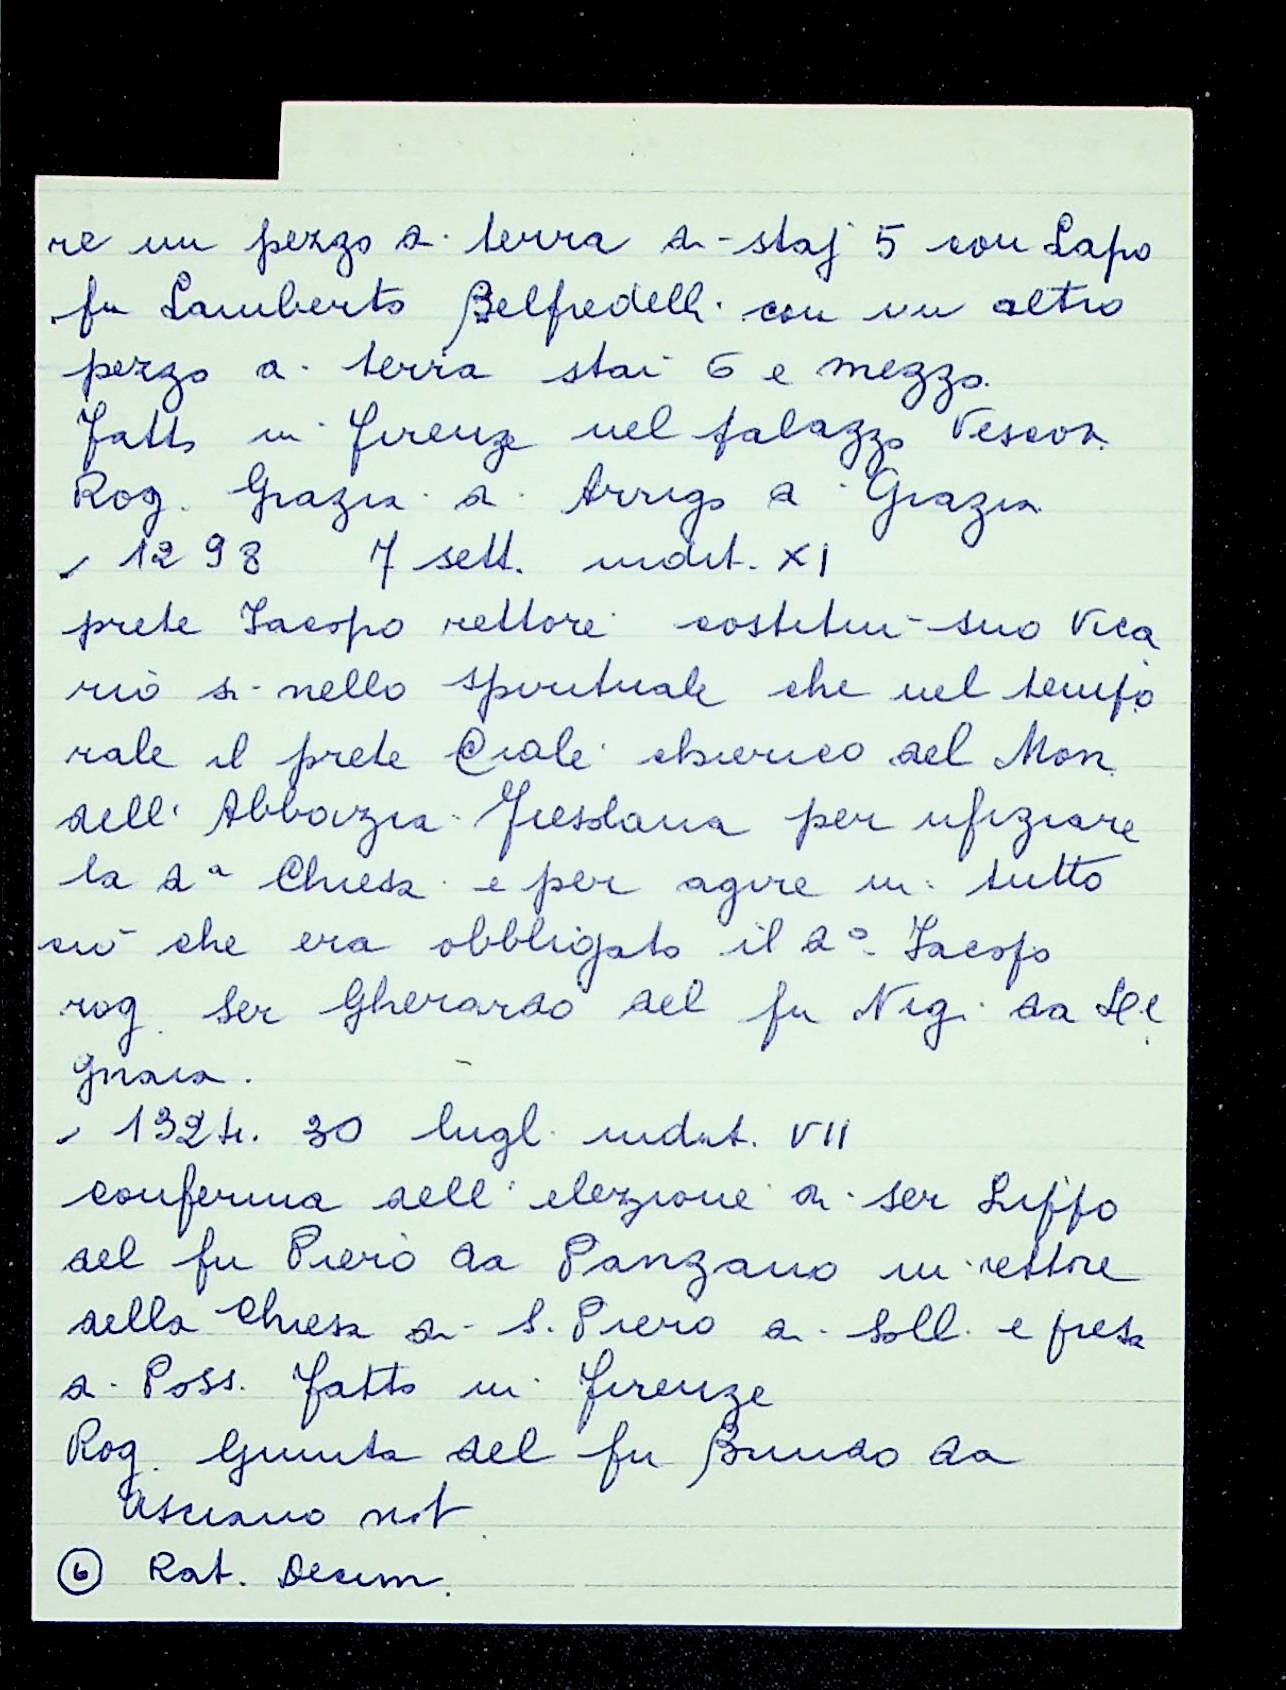 re un pezzo di terra di staj 5 con Lapo
fu Lamberto Belfredelli con un altro
pezzo di terra stai 6 e mezzo.
Fatto in Firenze nel palazzo Vescov.
Rog. Grazia di Arrigo di Grazia
, 1298 7 sett. indit. XI
prete Jacopo rettore costitui suo Vica
rio si nello spirituale che nel tempo
rale il prete chierico del Mon.
dell' Abbazia Fiesolana per ufiziare
la da Chiesa e per agire in tutto
ciò che era obbligato il do Jacopo
rog. ser Gherardo del fu Nigi da
gnaia.
, 1324. 30 lugl. indit. VII
conferma dell' elezione di ser Lippo
del fu Piero da Panzano in rettore
della Chiesa di S. Piero a Soll. e presa
di Poss. Fatto in Firenze
Rog. Giunta del fu da
Asciano not.
6 Rat. Decim.